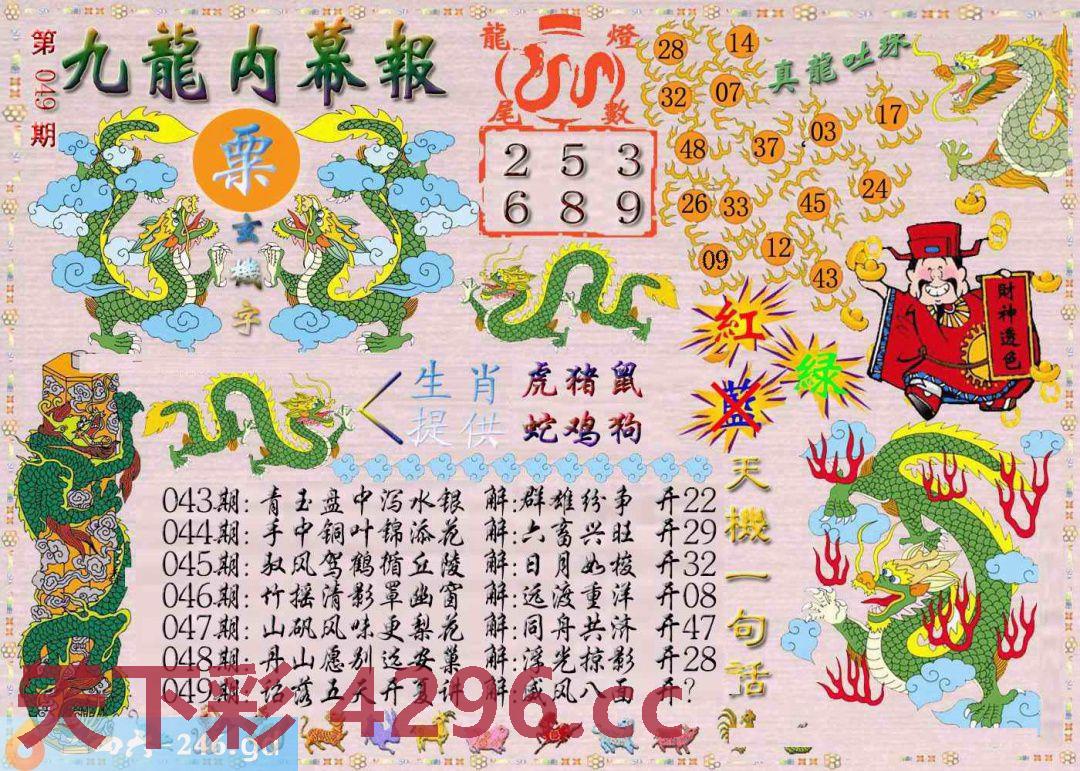 第049期
九龍内幕報
票
玄機字
龍燈尾數
2 5 3
6 8 9
真龍吐珠
28 14 32 07 17 03 48 37 24 45 26 33 12 09 43
紅
綠
藍
財神透色
生肖提供
虎猪鼠
蛇鸡狗
天機一句话
043期: 青玉盘中泻水银 解:群雄纷争 开22
044期: 手中铜叶锦添花 解:六畜兴旺 开29
045期: 驭风驾鹤循丘陵 解:日月如梭 开32
046期: 竹摇清影罩幽窗 解:远渡重洋 开08
047期: 山矾风味更梨花 解:同舟共济 开47
048期: 丹山愿别远安巢 解:浮光掠影 开28
049期: 五天开 解:威风八面 开?
天下彩 4296.cc
246.gd